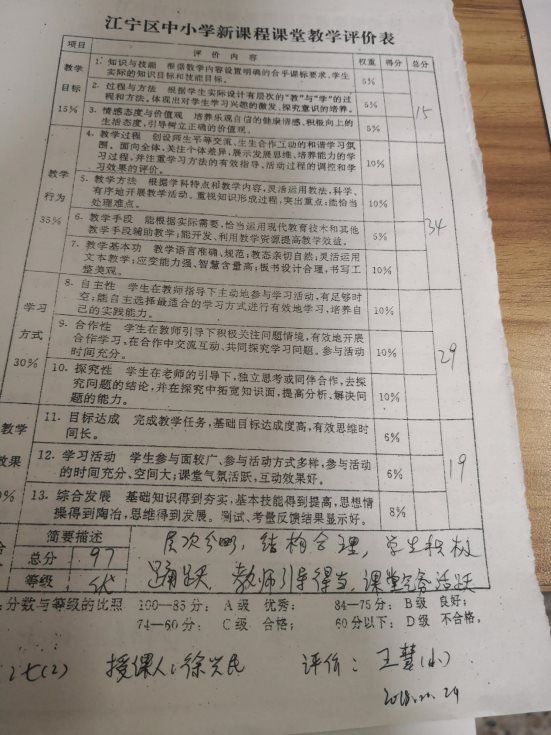 江宁区中小学新课程课堂教学评价表
项目 评价内容 权重 得分 总分
教学目标 15%
1. 知识与技能 根据教学内容设置明确的合乎课标要求、学生
实际的知识目标和技能目标。 5%
2. 过程与方法 根据学生实际设计有层次的“教”与“学”的过
程和方法。体现出对学生学习兴趣的激发、探究意识的培养。 5%
3. 情感态度与价值观 培养乐观自信的健康情感、积极向上的
生活态度,引导树立正确的价值观。 5%
15
教学行为 35%
4. 教学过程 创设师生平等交流、生生合作互动的和谐学习氛
围。面向全体,关注个体差异,展示发展思维、培养能力的学
习过程,并注重学习方法的有效指导、活动过程的调控和学
习效果的评价。 10%
5. 教学方法 根据学科特点和教学内容,灵活运用教法,科学、
有序地开展教学活动。重视知识形成过程,突出重点;能恰当
处理难点。 10%
6. 教学手段 能根据实际需要,恰当运用现代教育技术和其他
教学手段辅助教学;能开发、利用教学资源提高教学效益。 5%
7. 教学基本功 教学语言准确、规范;教态亲切自然;灵活运用
文本教学;应变能力强、智慧含量高;板书设计合理,书写工
整美观。 10%
34
学习方式 30%
8. 自主性 学生在教师指导下主动地参与学习活动,有足够时
空;能自主选择最适合的学习方式进行有效地学习,培养自
己的实践能力。 10%
9. 合作性 学生在教师引导下积极关注问题情境,有效地开展
合作学习,在合作中交流互动、共同探究学习问题。参与活动
时间充分。 10%
10. 探究性 学生在老师的引导下,独立思考或同伴合作,去探
究问题的结论,并在探究中拓宽知识面,提高分析、解决问
题的能力。 10%
29
教学
效果
11. 目标达成 完成教学任务,基础目标达成度高,有效思维时
间长。 6%
12. 学习活动 学生参与面较广、参与活动方式多样,参与活动
的时间充分、空间大;课堂气氛活跃,互动效果好。 6%
13. 综合发展 基础知识得到夯实,基本技能得到提高,思想情
操得到陶冶,思维得到发展。测试、考量反馈结果显示好。 8%
19
简要描述 层次分明,结构合理,学生积极
总分 97
等级 优 踊跃 教师引导得当,课堂气氛活跃
:分数与等级的比照 100—85分: A级 优秀; 84—75分: B级 良好;
74—60分: C级 合格; 60分以下: D级 不合格。
七(2) 授课人:徐兴民 评价:王慧(小)